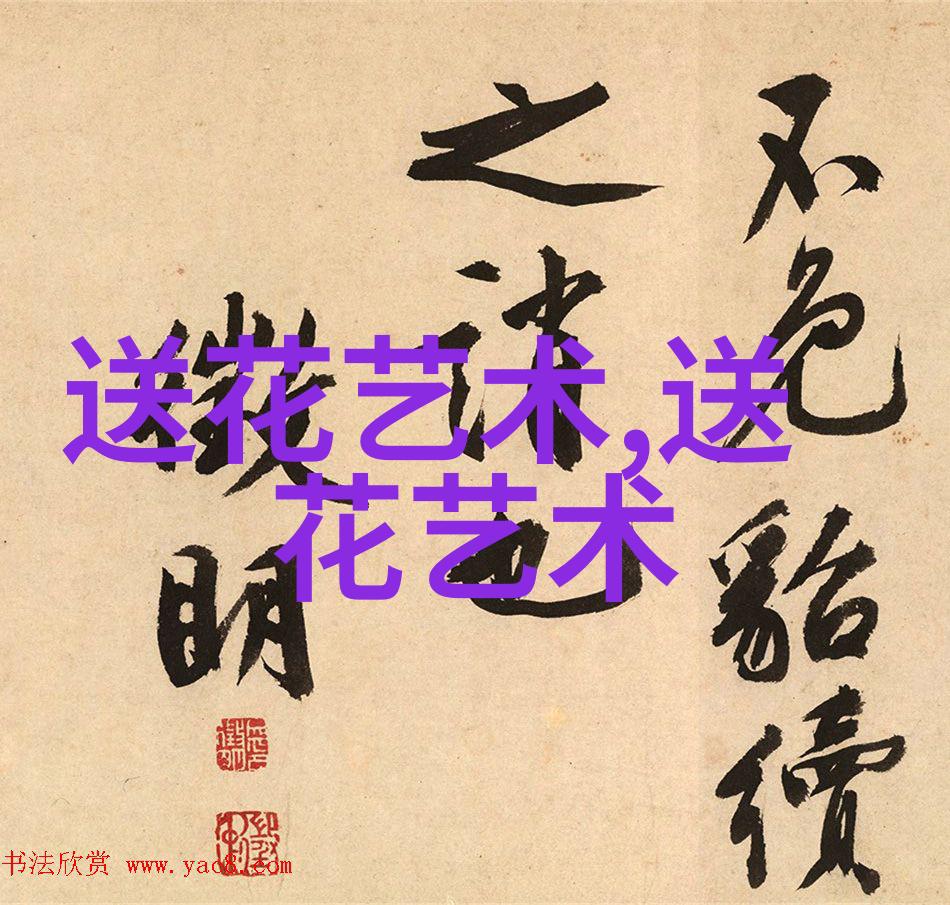 不免貂續
之誚也
徵明
送花艺术,送
花艺术
书法欣赏 www.yac8.com